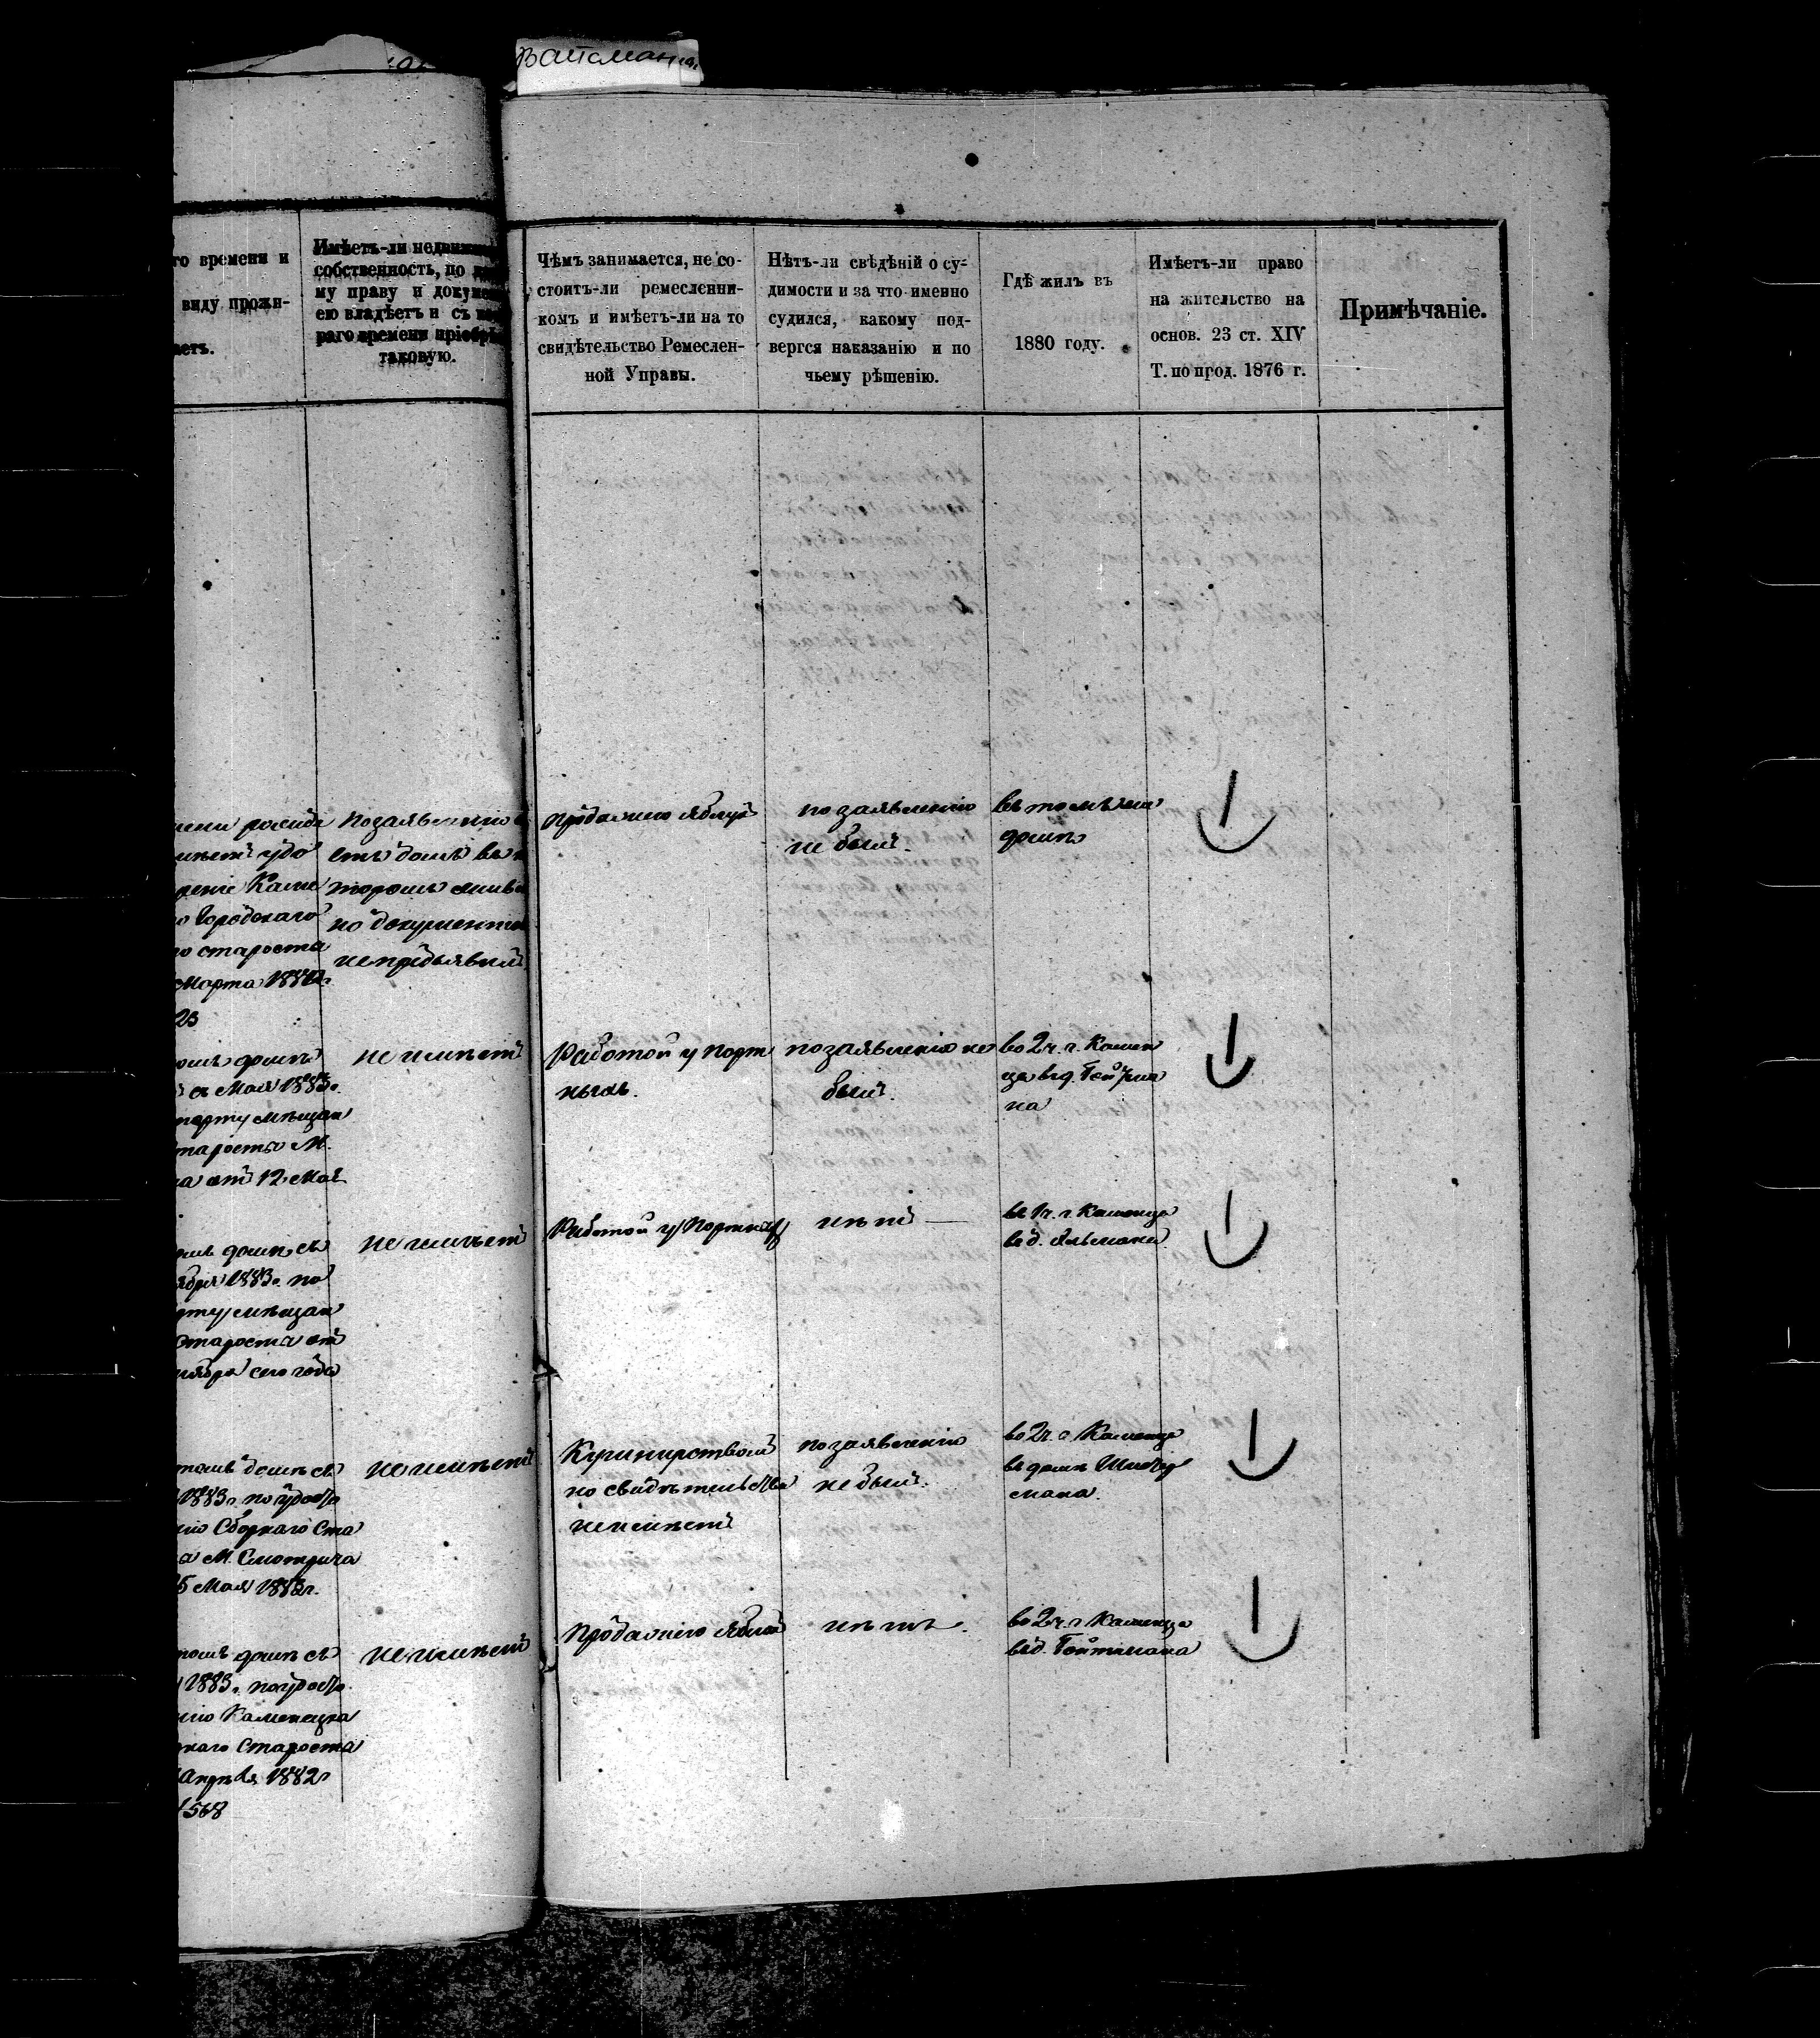 Вайсмана
го времени и
виду прожи-
аетъ.
Имѣетъ-ли недвижи
собственность, по ка
му праву и докуме
ею владѣетъ и съ ко
раго времени пріобрѣ
таковую.
Чѣмъ занимается, не со-
стоитъ-ли ремесленни-
комъ и имѣетъ-ли на то
свидѣтельство Ремеслен-
ной Управы.
Нѣтъ-ли свѣдѣній о су-
димости и за что именно
судился, какому под-
вергся наказанію и по
чьему рѣшенію.
Гдѣ жилъ въ
1880 году.
Имѣетъ-ли право
на жительство на
основ. 23 ст. XIV
Т. по прод. 1876 г.
Примѣчаніе.
удо
реніе Каме
о Городскаго
го старосты
Марта 1882г.
23
по заявленію
етъ домъ въ к
торомъ живе
но документа
не предъявилъ
продажею яблук
по заявленію
не былъ.
въ томъ же
домѣ
омъ домѣ
съ Мая 1883г.
порту мѣщан
тароста М.
а отъ 12 Мая
не имѣетъ
Работой у порт
ныхъ.
по заявленію не
былъ.
во 2 ч. г. Камен
ца въ д.
на
омъ домѣ съ
ября 1883г. по
порту мѣщан
Старосты отъ
ября сего года
не имѣетъ
Работой у Портных
нѣтъ —
въ 1 ч. г. Каменца
въ д.
томъ домѣ съ
1883г. по удосто
нію Сборнаго Ста
а М. Смотрича
5 Мая 1882г.
не имѣетъ
но свидѣтельства
не имѣетъ
по заявленію
не былъ.
во 2 ч. г. Каменца
въ домѣ
мана.
томъ домѣ съ
1883г. по удосто
нію Каменецка
рнаго Старосты
Апрѣля 1882г
1568
не имѣетъ
Продажею яблок
нѣтъ.
во 2 ч. г. Каменца
въ д. Гойтмана